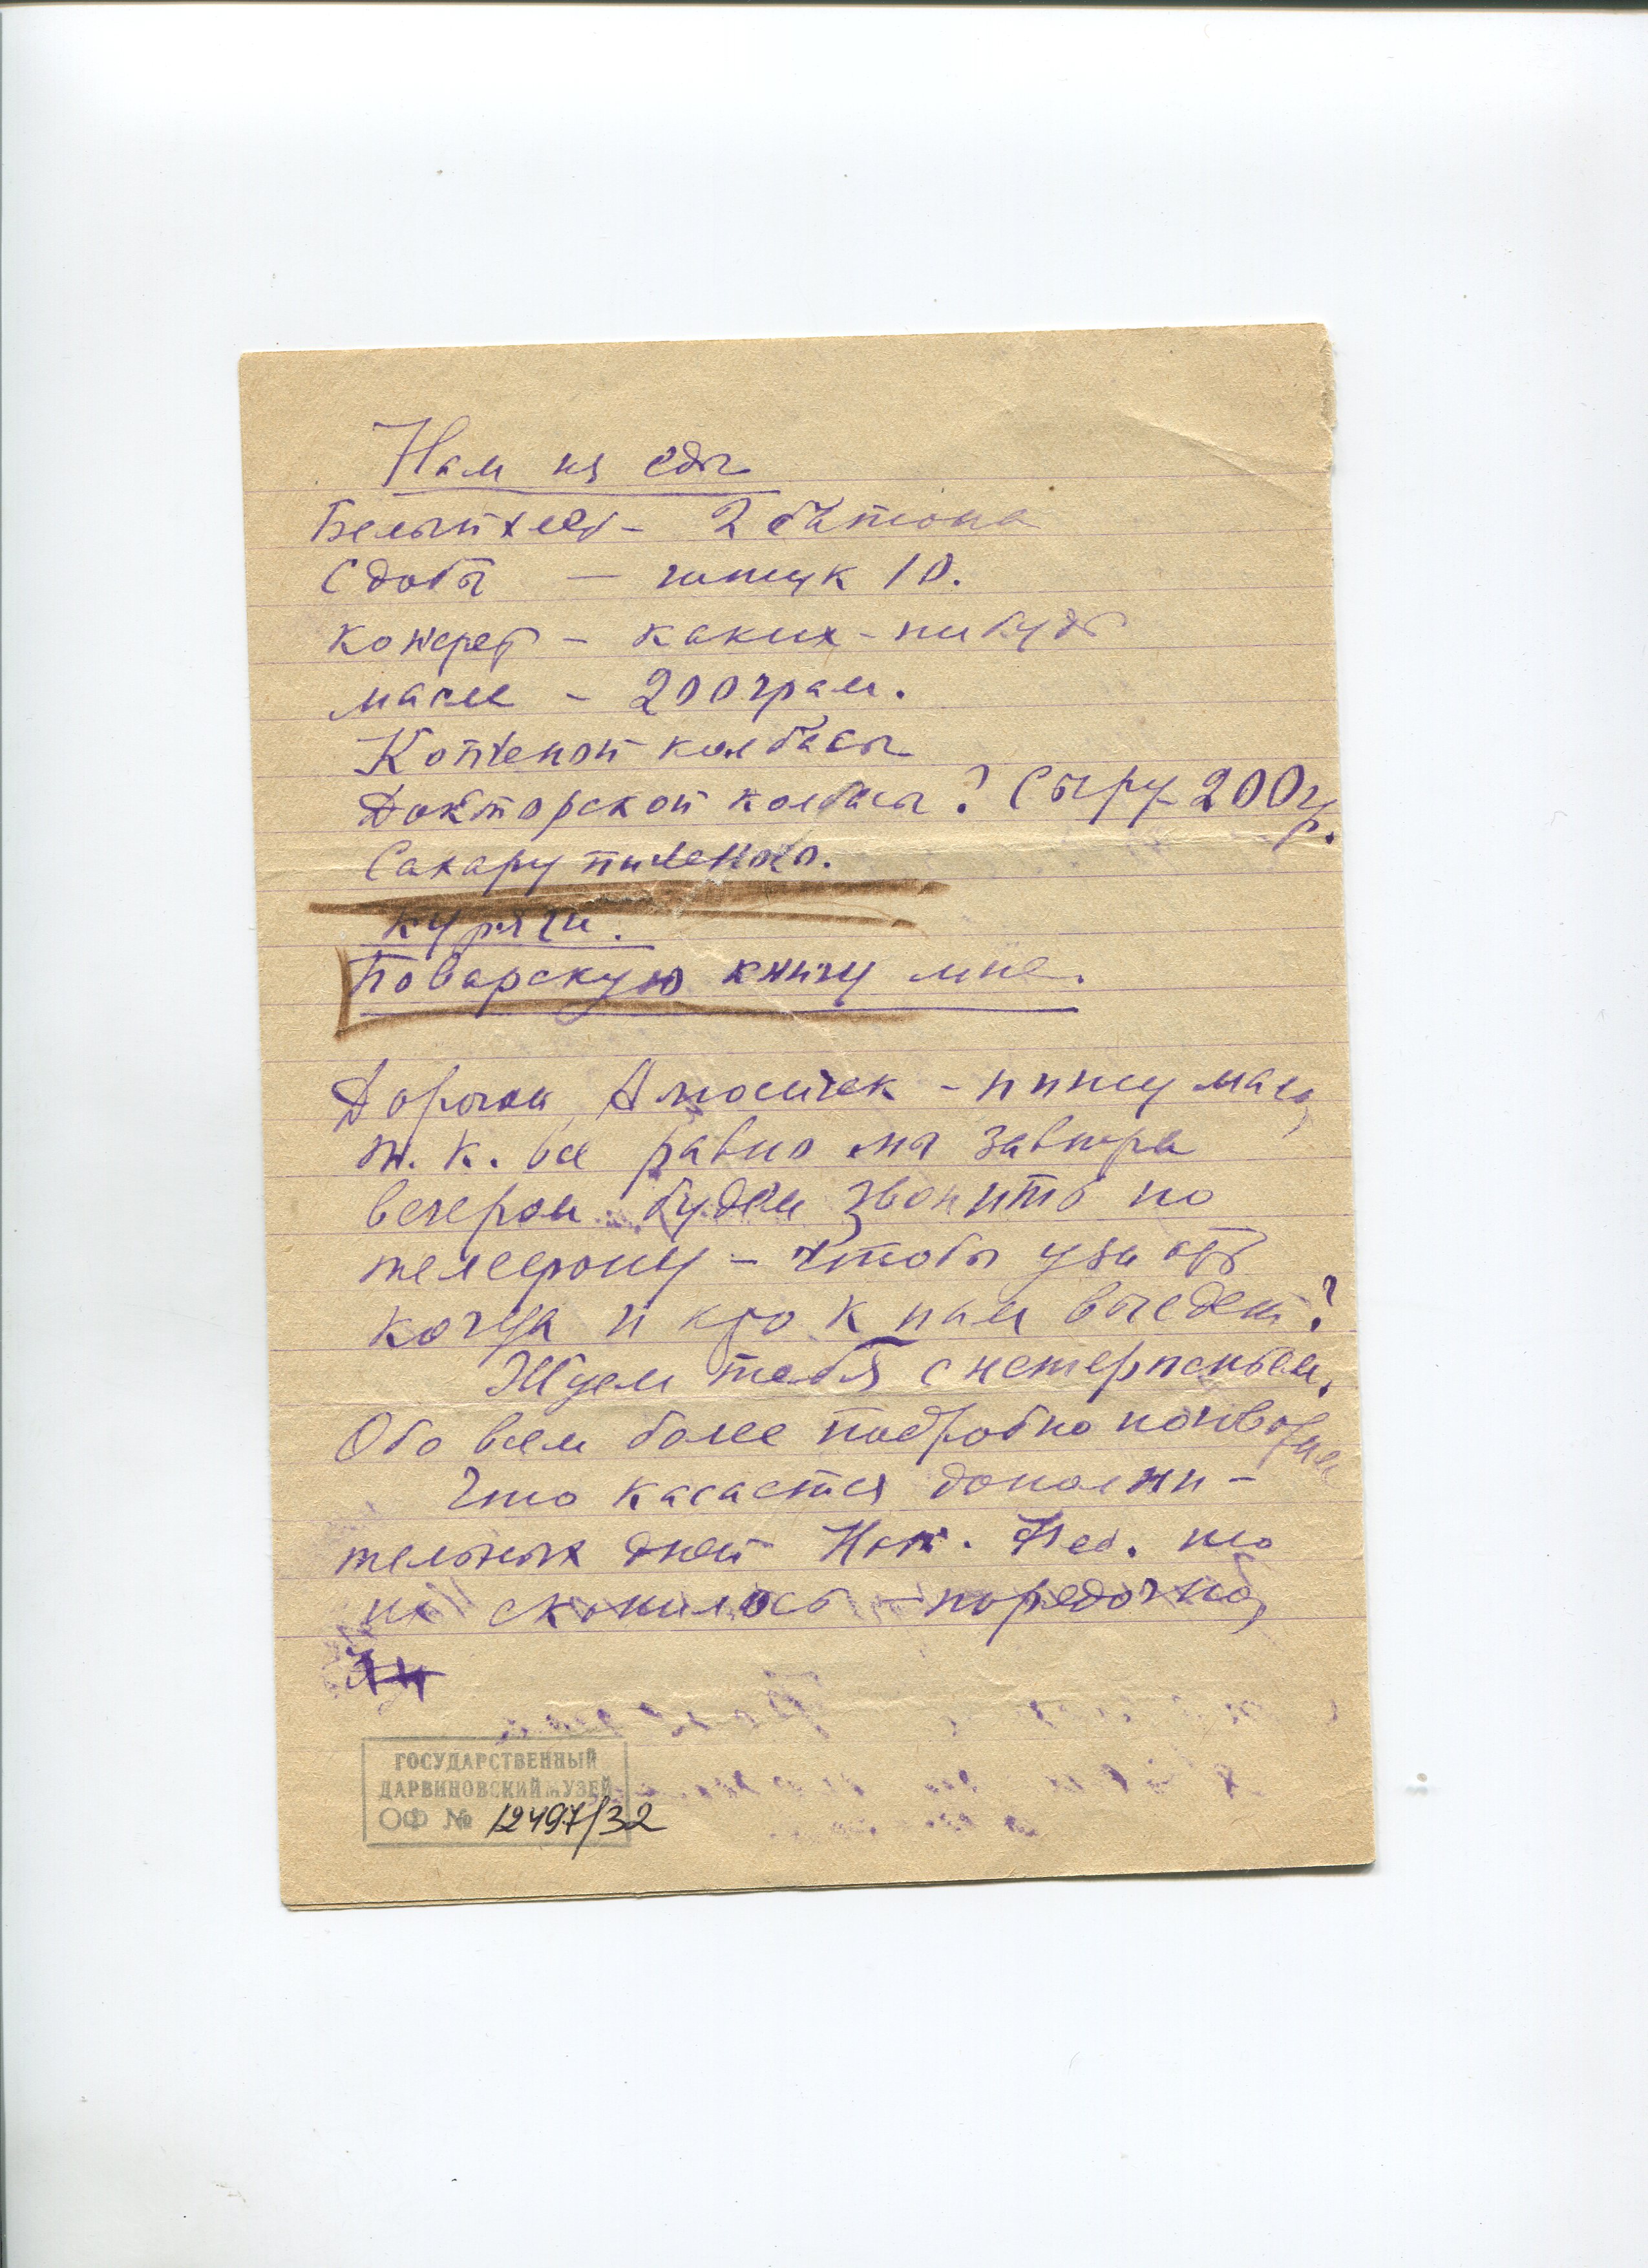 Нам из еды
Белый хлеб - 2 батона
Сдобы — штук 10.
консерв - каких-нибудь
масла - 200 грам.
Копченой колбасы
Докторской колбасы? Сыру - 200 гр.
Сахару пиленого.
Поварскую книгу мне.
Дорогой - пишу мало,
т. к. все равно мы завтра
вечером будем звонить по
телефону - чтобы узнать
когда и кто к нам выедет?
Ждем тебя с нетерпеньем.
Обо всем более подробно поговорим
Что касается дополни-
тельных дней Над. Фед. то
их скопилось - порядочно,
ГОСУДАРСТВЕННЫЙ
ДАРВИНОВСКИЙ МУЗЕЙ
ОФ № 12497/32